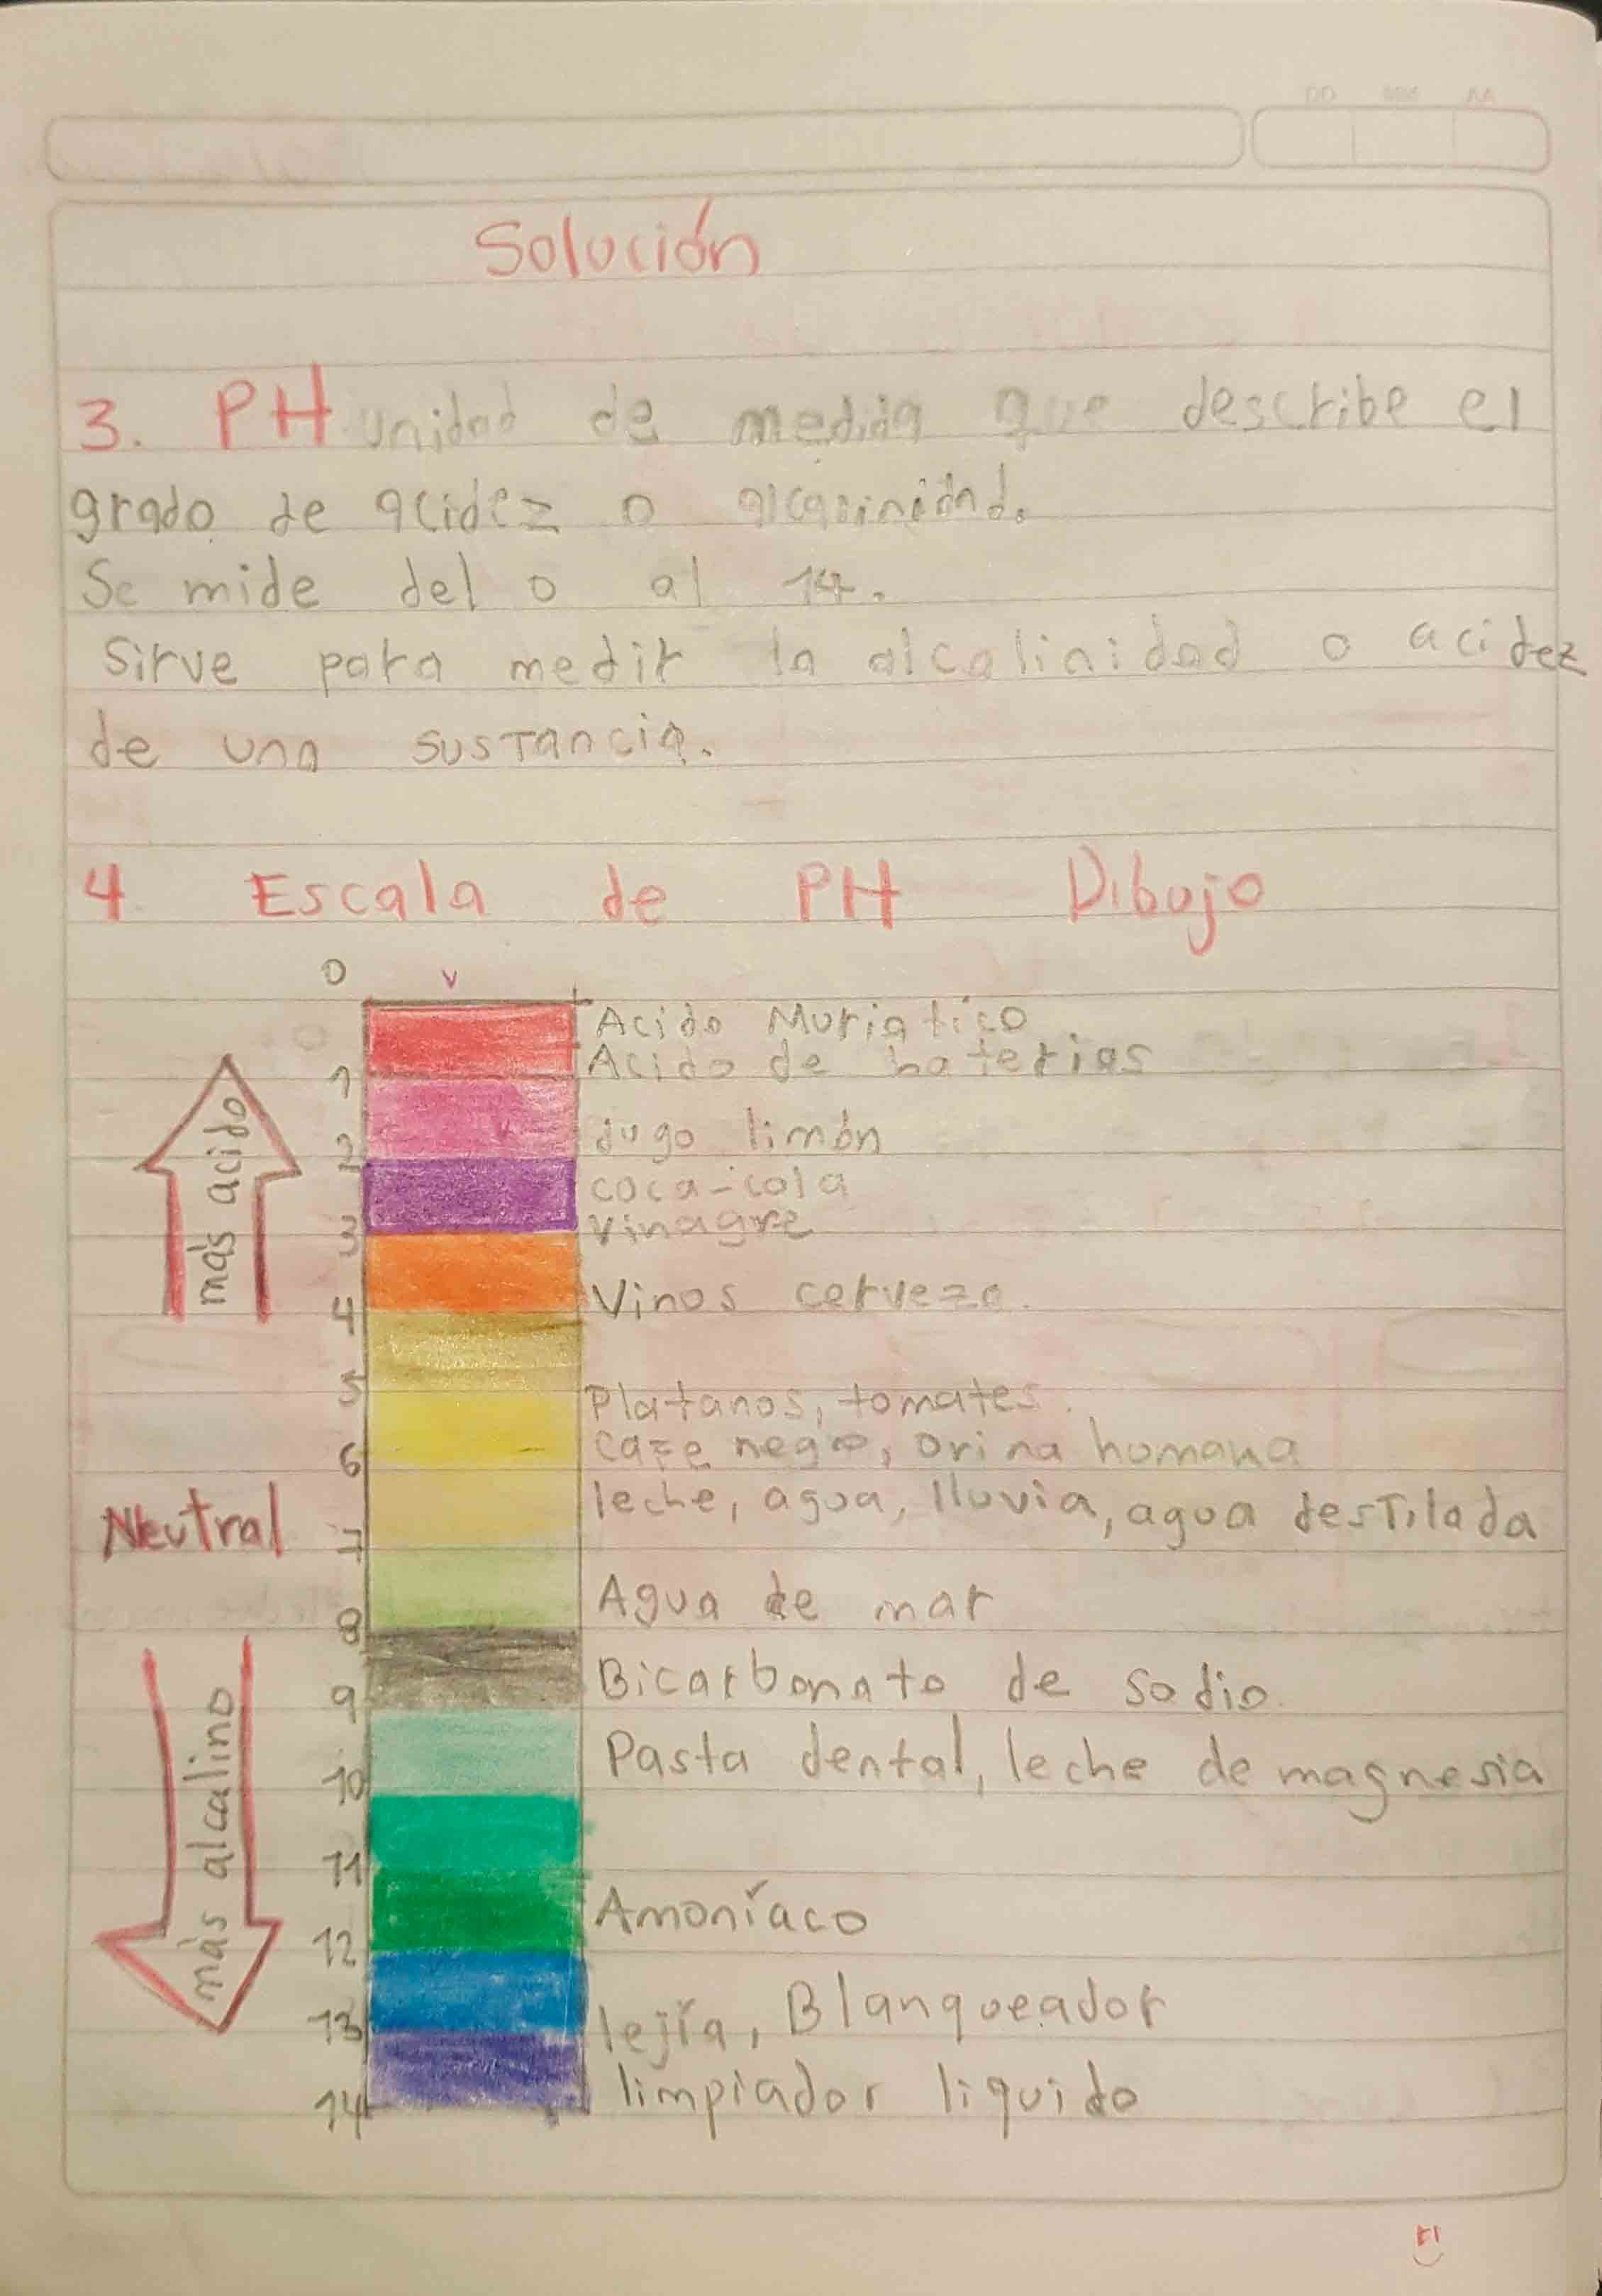 Solución
3. PH unidad de medida que describe el
grado de acidez o alcalinidad.
Se mide del 0 al 14.
Sirve para medir la alcalinidad o acidez
de una sustancia.
4 Escala de PH Dibujo
0 v
Acido Muriatico
Acido de baterias
1
jugo limón
2
coca-cola
Vinagre
3
más acido
Vinos cerveza.
4
5
Platanos, tomates.
Cafe negro, orina humana
6
leche, agua, lluvia, agua destilada
Neutral 7
Agua de mar
8
Bicarbonato de sodio.
9
Pasta dental, leche de magnesia
10
más alcalino
11
Amoníaco
12
lejía, Blanqueador
13
limpiador liquido
14